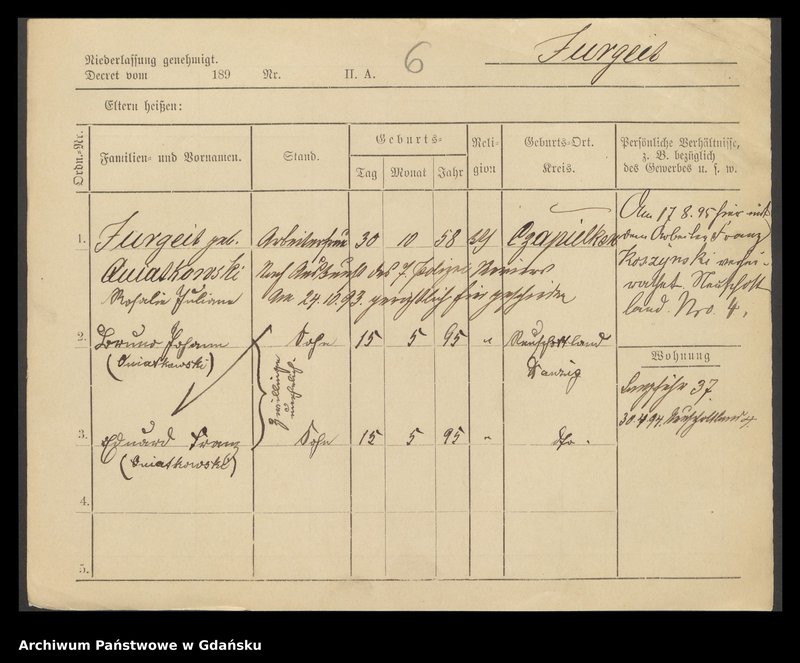 Niederlassung genehmigt.
Decret vom 189 Nr. II. A. 6
Furgeit
Eltern heißen:
Ordn.-Nr.
Familien- und Vornamen.
Stand.
Geburts-
Tag
Monat
Jahr
Reli-
gion
Geburts-Ort.
Kreis.
Persönliche Verhältnisse,
z. B. bezüglich
des Gewerbes u. s. w.
1. Furgeit geb. Arbeiterfrau 30 10 58 Czapielken
Quiatkowski Nach Auskunft des 7. Polizei Reviers
Rosalie Juliane am 24.10.93. gerichtlich hier geschieden
Am 17 8. 95 hier mit
dem Arbeiter Franz
Koszynski verhei-
rathet. Neuschott
land. Nro. 4.
2. Bruno Johann Sohn 15 5 95 " Neuschottland
(Quiatkowski) Danzig
Zwillinge
unehelich.
3. Eduard Franz Sohn 15 5 95 " dto.
(Quiatkowski)
4.
5.
Wohnung
Langfuhr 37.
30.4.94. Neuschottland 4
Archiwum Państwowe w Gdańsku